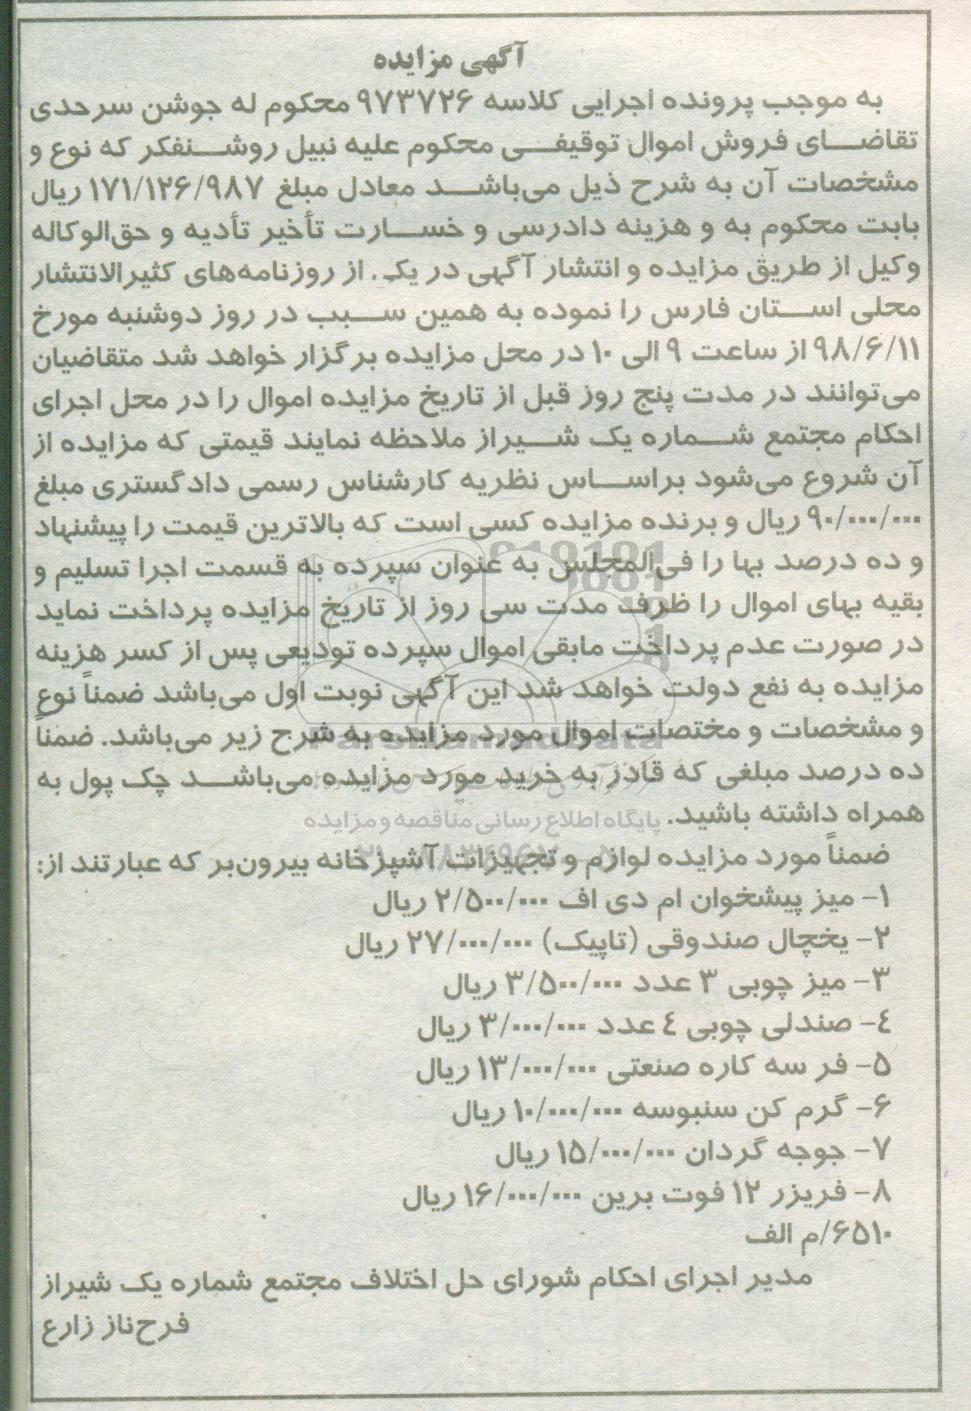 آگهی مزایده
به موجب پرونده اجرایی کلاسه ۹۷۳۷۲۶ محکوم له جوشن سرحدی
تقاضای فروش اموال توقیفی محکوم علیه نبیل روشنفکر که نوع و
مشخصات آن به شرح ذیل می‌باشد معادل مبلغ ۱۷۱/۱۲۶/۹۸۷ ریال
بابت محکوم به و هزینه دادرسی و خسارت تأخیر تأدیه و حق‌الوکاله
وکیل از طریق مزایده و انتشار آگهی در یکی از روزنامه‌های کثیرالانتشار
محلی استان فارس را نموده به همین سبب در روز دوشنبه مورخ
۹۸/۶/۱۱ از ساعت ۹ الی ۱۰ در محل مزایده برگزار خواهد شد متقاضیان
می‌توانند در مدت پنج روز قبل از تاریخ مزایده اموال را در محل اجرای
احکام مجتمع شماره یک شیراز ملاحظه نمایند قیمتی که مزایده از
آن شروع می‌شود براساس نظریه کارشناس رسمی دادگستری مبلغ
۹۰/۰۰۰/۰۰۰ ریال و برنده مزایده کسی است که بالاترین قیمت را پیشنهاد
و ده درصد بها را فی‌المجلس به عنوان سپرده به قسمت اجرا تسلیم و
بقیه بهای اموال را ظرف مدت سی روز از تاریخ مزایده پرداخت نماید
در صورت عدم پرداخت مابقی اموال سپرده تودیعی پس از کسر هزینه
مزایده به نفع دولت خواهد شد این آگهی نوبت اول می‌باشد ضمناً نوع
و مشخصات و مختصات اموال مورد مزایده به شرح زیر می‌باشد. ضمناً
ParsNamadData
ده درصد مبلغی که قادر به خرید مورد مزایده می‌باشد چک پول به
همراه داشته باشید.
پایگاه اطلاع رسانی مناقصه و مزایده
ضمناً مورد مزایده لوازم و تجهیزات آشپزخانه بیرون‌بر که عبارتند از:
۱- میز پیشخوان ام دی اف ۲/۵۰۰/۰۰۰ ریال
۲- یخچال صندوقی (تاپیک) ۲۷/۰۰۰/۰۰۰ ریال
۳- میز چوبی ۳ عدد ۳/۵۰۰/۰۰۰ ریال
٤- صندلی چوبی ٤ عدد ۳/۰۰۰/۰۰۰ ریال
۵- فر سه کاره صنعتی ۱۳/۰۰۰/۰۰۰ ریال
۶- گرم کن سنبوسه ۱۰/۰۰۰/۰۰۰ ریال
۷- جوجه گردان ۱۵/۰۰۰/۰۰۰ ریال
۸- فریزر ۱۲ فوت برین ۱۶/۰۰۰/۰۰۰ ریال
۶۵۱۰/م الف
مدیر اجرای احکام شورای حل اختلاف مجتمع شماره یک شیراز
فرح‌ناز زارع